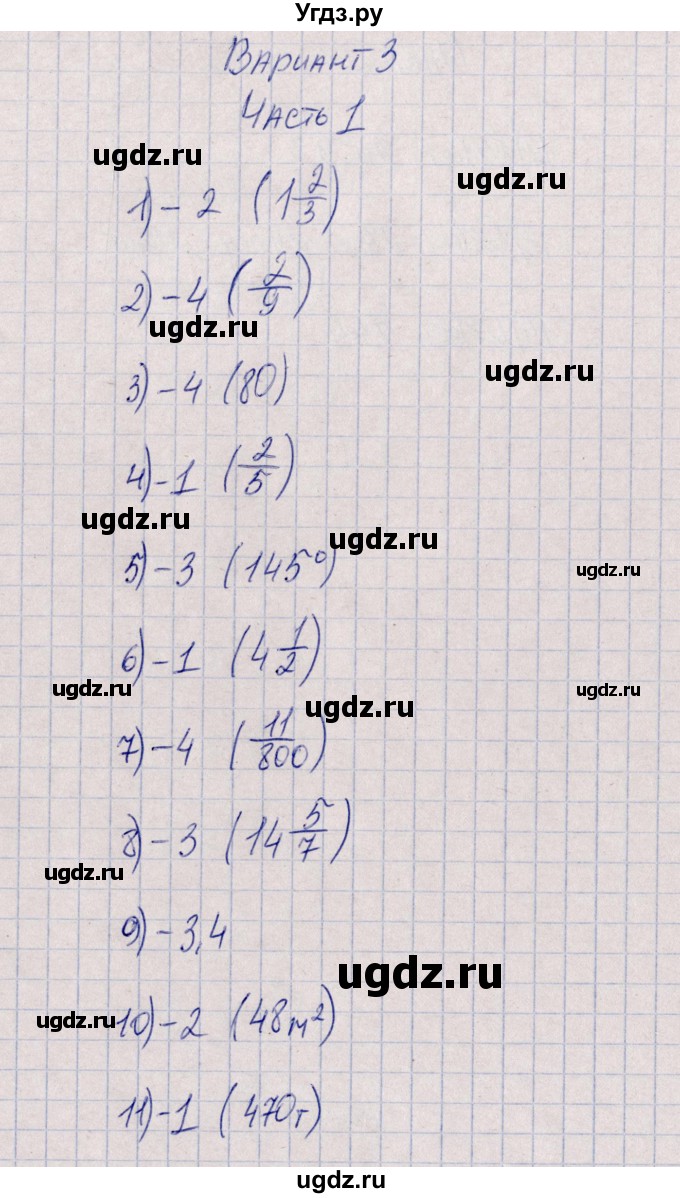 Угдз.ру
Вариант 3
Часть 1
ugdz.ru
ugdz.ru
1) - 2 (1 2/3)
2) - 4 (2/9)
ugdz.ru
ugdz.ru
3) - 4 (80)
4) - 1 (2/5)
ugdz.ru
ugdz.ru
5) - 3 (145°)
ugdz.ru
6) - 1 (4 1/2)
ugdz.ru
ugdz.ru
ugdz.ru
7) - 4 (11/800)
8) - 3 (14 5/7)
ugdz.ru
9) - 3,4
ugdz.ru
ugdz.ru
10) - 2 (48 м²)
11) - 1 (470т)
ugdz.ru